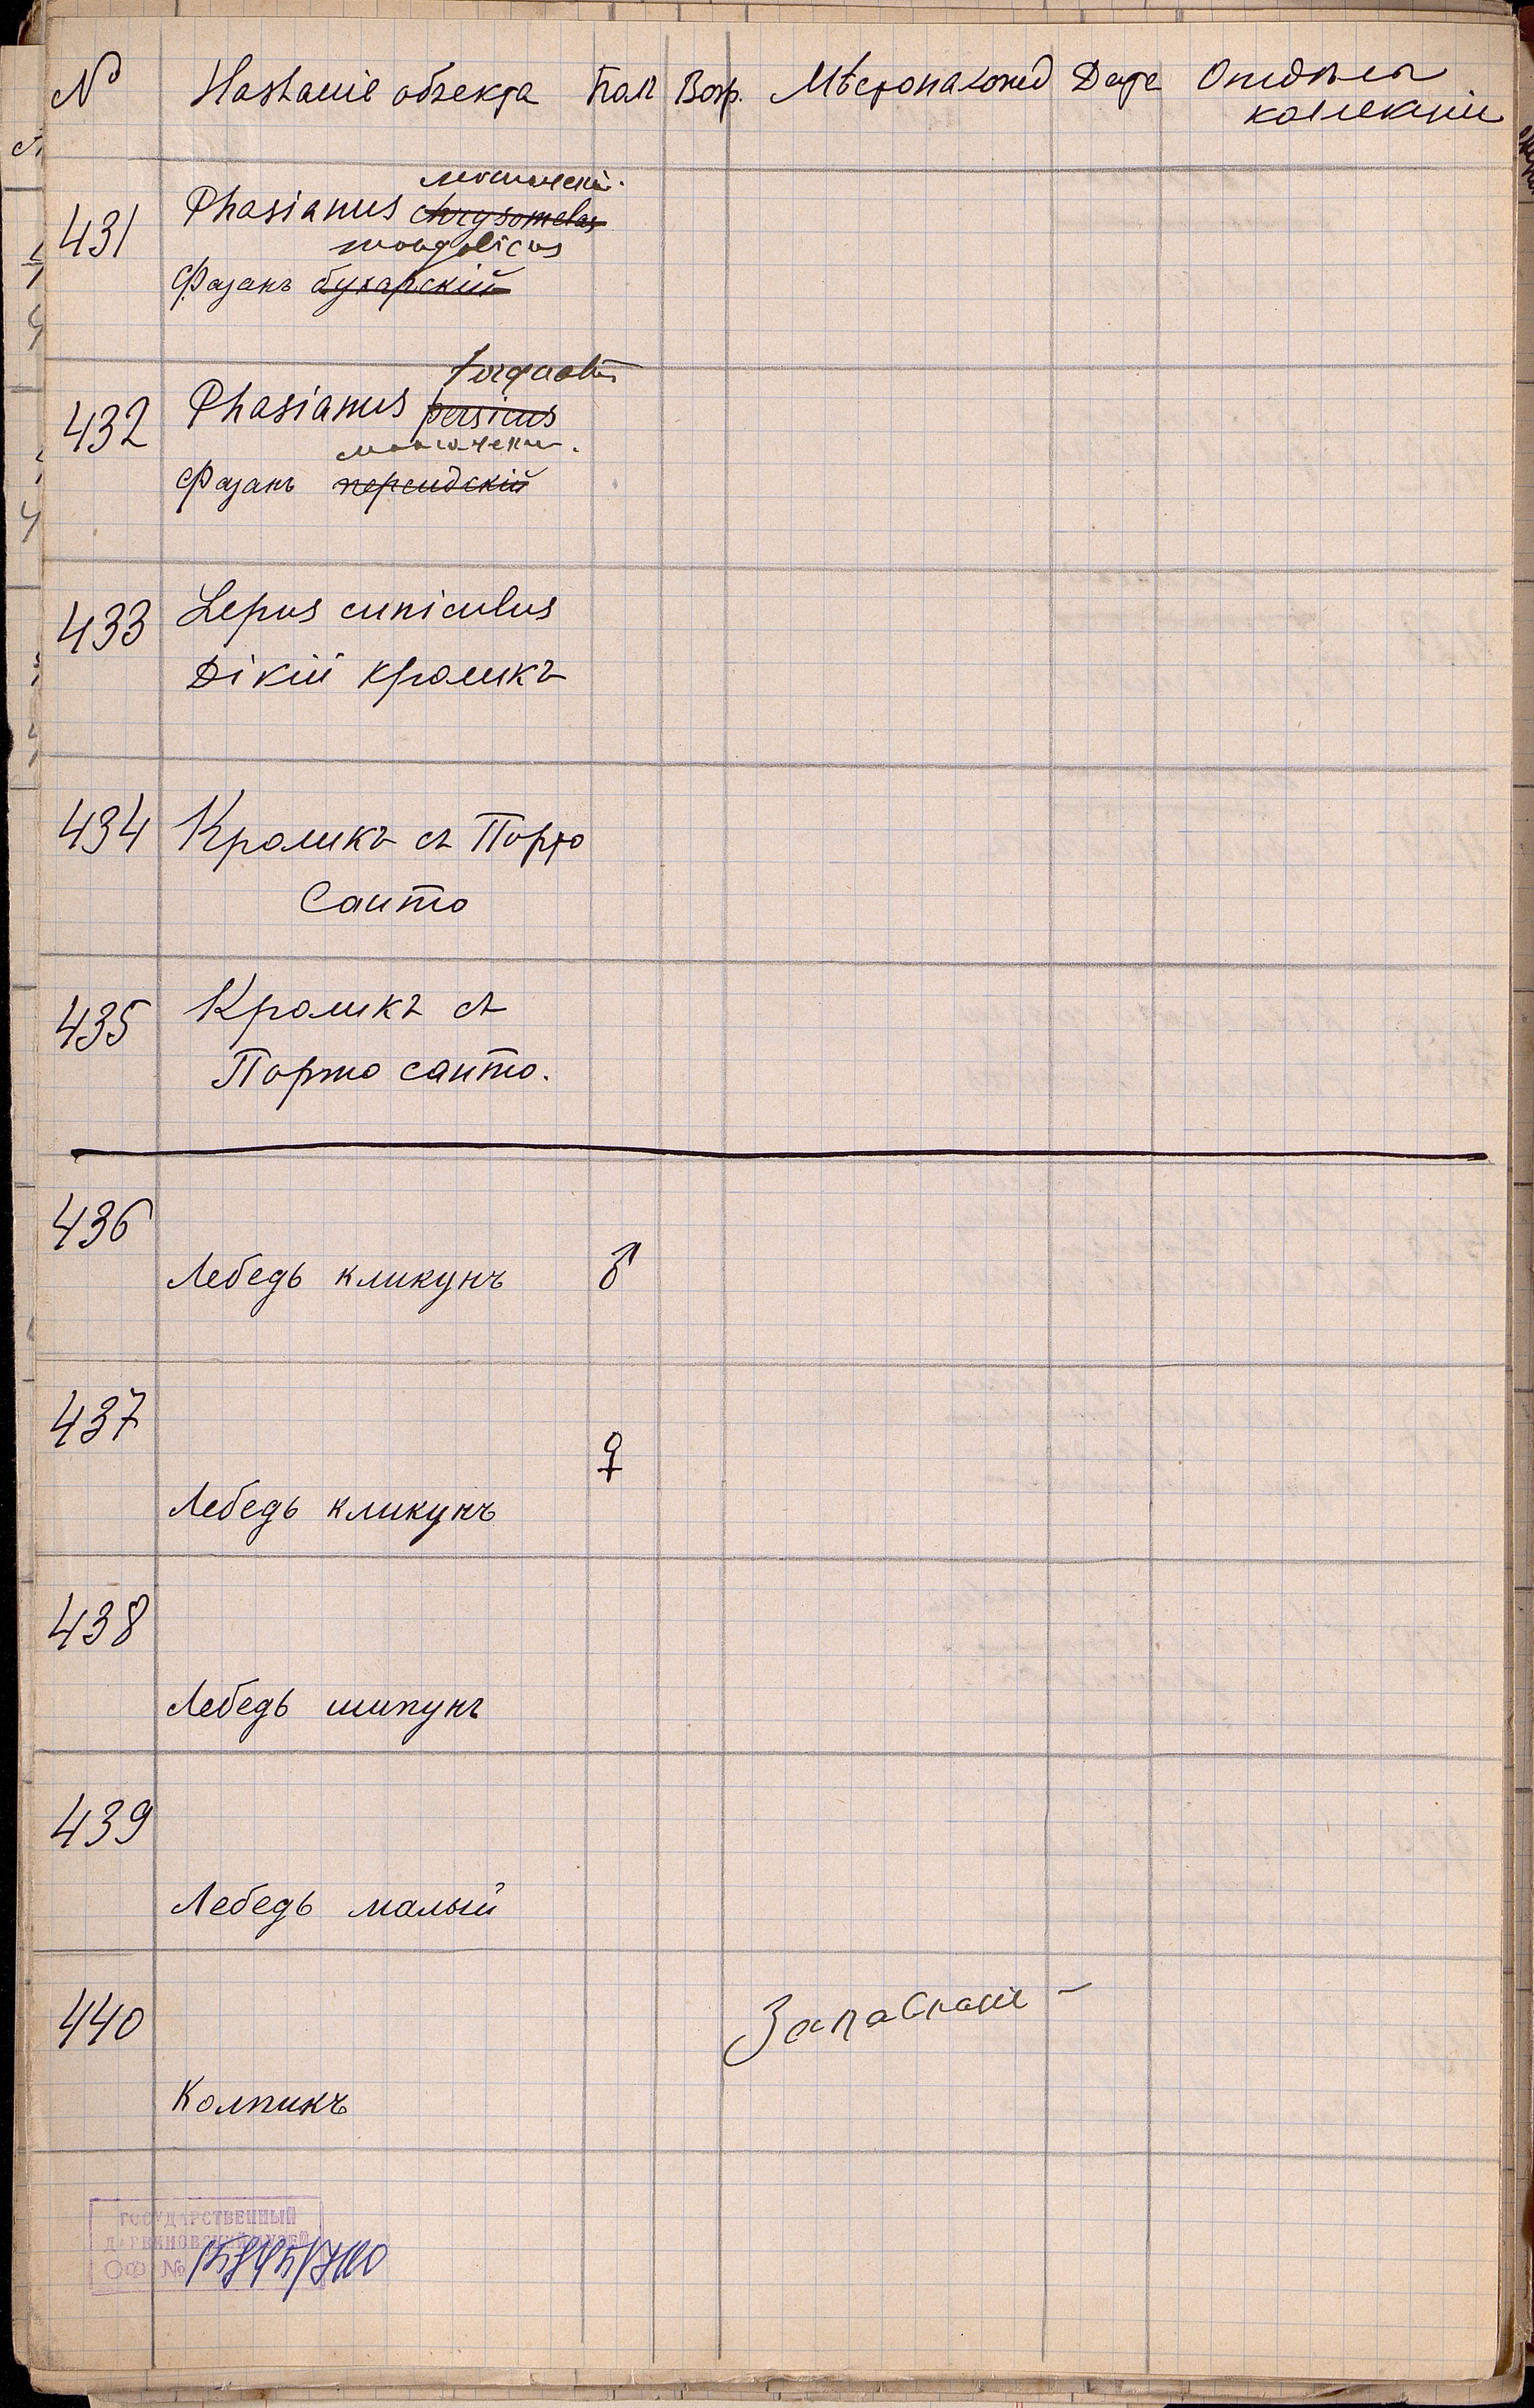 № Названіе объекта Полъ Возр. Мѣстонахожд Дата Отдѣлы
коллекціи
431 Phasianus chrysomelas
mongolicus
Фазанъ бухарскій
torquatus
432 Phasianus persicus
Фазанъ персидскій
433 Lepus cuniculus
Дікій кроликъ
434 Кроликъ съ Порто
Санто
435 Кроликъ съ
Порто санто.
436
Лебедь кликунъ ♂
437
♀
Лебедь кликунъ
438
Лебедь шипунъ
439
Лебедь малый
440
Колпикъ
ГОСУДАРСТВЕННЫЙ
ДАРВИНОВСКИЙ МУЗЕЙ
ОФ №